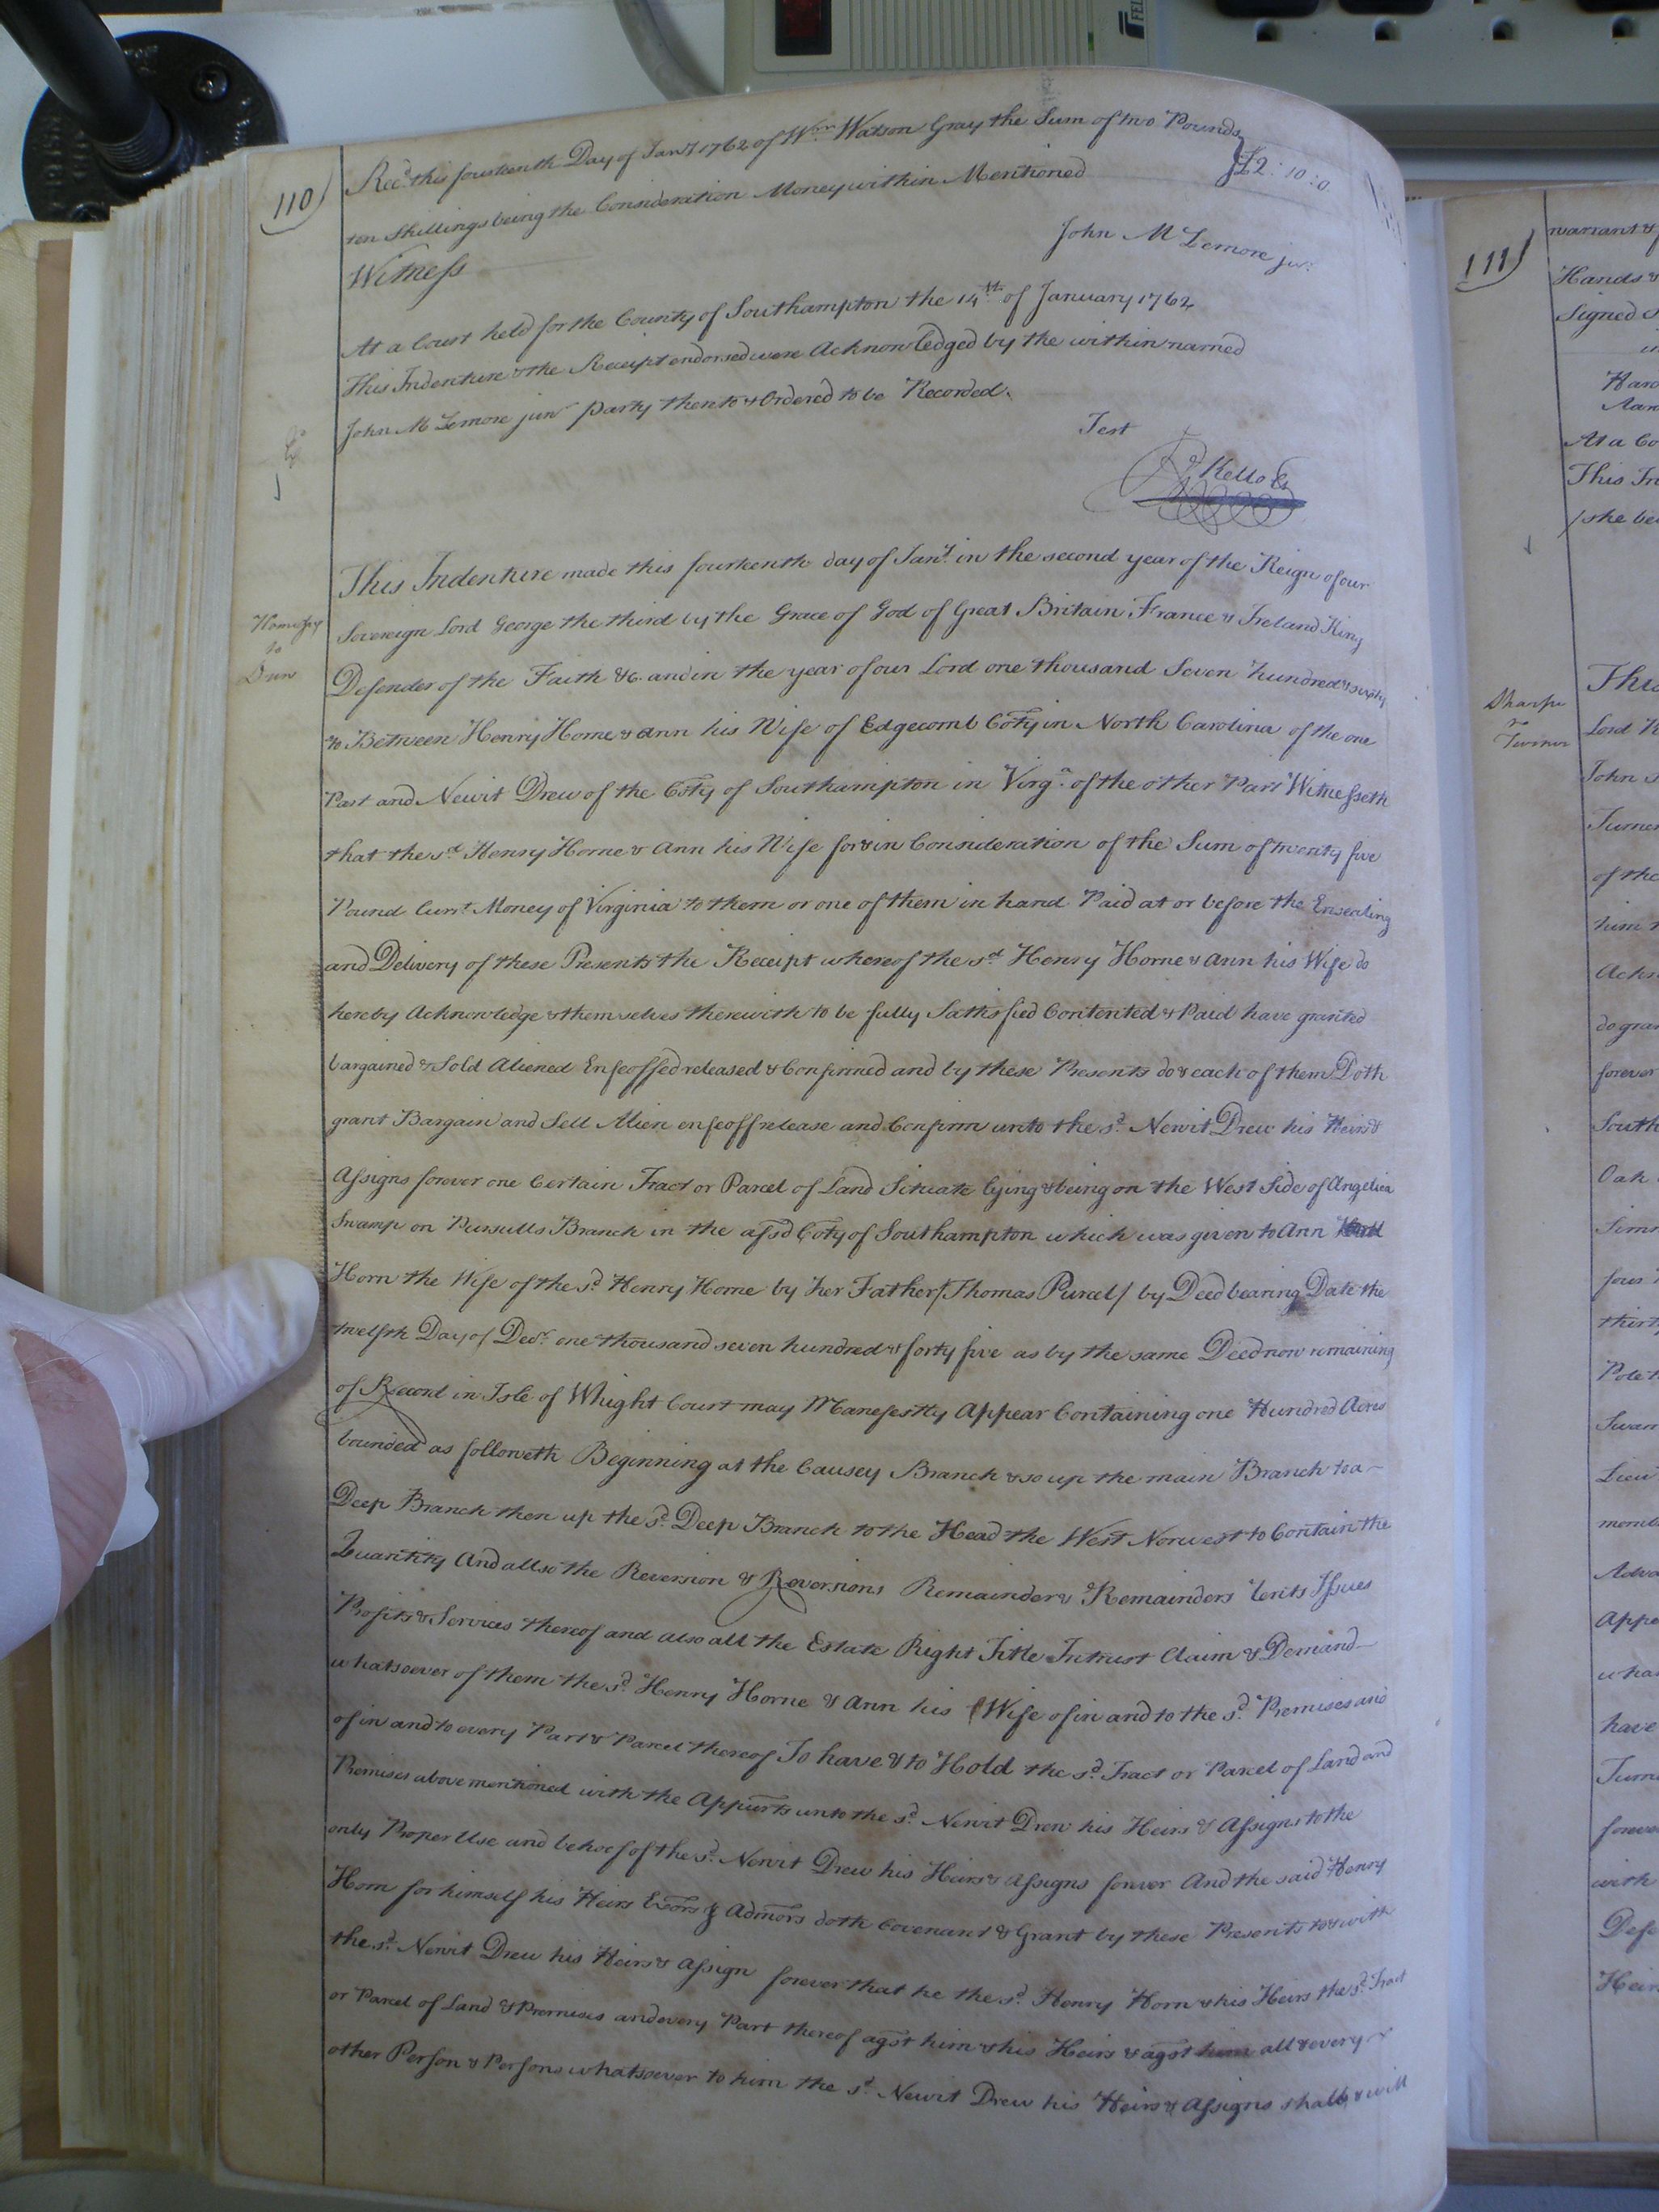 110)
Rec.d this fourteenth Day of Jan.y 1762 of W.m Watson Gray the Sum of two Pounds
ten Shillings being the Consideration Money within Mentioned £2:10:0
John M Lemore jun.r
Witness
At a Court held for the County of Southampton the 14.th of January 1762
This Indenture & the Receipt endorsed were Acknowledged by the within named
John M Lemore jun.r party thereto & Ordered to be Recorded.
Test
R Kello Cs
This Indenture made this fourteenth day of Jan.y in the second year of the Reign of our
Sovereign Lord George the third by the Grace of God of Great Britain France & Ireland King
to
Drew
Defender of the Faith &c. and in the year of our Lord one thousand Seven hundred & sixty
to Between Henry Horne & Ann his Wife of Edgecomb Coty in North Carolina of the one
Part and Newit Drew of the Coty of Southampton in Virg.a of the other Part Witnesseth
that the s.d Henry Horne & Ann his Wife for & in Consideration of the Sum of twenty five
Pound Curr.t Money of Virginia to them or one of them in hand Paid at or before the Ensealing
and Delivery of these Presents the Receipt whereof the s.d Henry Horne & Ann his Wife do
hereby Acknowledge & themselves therewith to be fully Sattisfied Contented & Paid have granted
bargained & Sold Aliened Enfeoffed released & Confirmed and by these Presents do & each of them Doth
grant Bargain and Sell Alien enfeoff release and Confirm unto the s.d Newit Drew his Heirs &
Assigns forever one Certain Tract or Parcel of Land Situate lying & being on the West Side of Angelica
Swamp on Pursulls Branch in the afsd Coty of Southampton which was given to Ann
Horn the Wife of the s.d Henry Horne by her Father /Thomas Purcel/ by Deed bearing Date the
twelfth Day of Dec.r one thousand seven hundred & forty five as by the same Deed now remaining
of Record in Isle of Whight Court may Manefestly Appear Containing one Hundred Acres
bounded as followeth Beginning at the Causey Branch & so up the main Branch to a
Deep Branch then up the s.d Deep Branch to the Head the West Norwest to Contain the
Quantity And allso the Reversion & Reversions Remainder & Remainders Rents Issues
Profits & Services thereof and also all the Estate Right Title Intrust Claim & Demand
whatsoever of them the s.d Henry Horne & Ann his Wife of in and to the s.d Premises and
of in and to every Part & Parcel thereof To have & to Hold the s.d Tract or Parcel of Land and
Premises above mentioned with the Appurts unto the s.d Newit Drew his Heirs & Assigns to the
only Proper Use and behoof of the s.d Newit Drew his Heirs & Assigns forever And the said Henry
Horn for himself his Heirs Exors & Admors doth Covenant & Grant by these Presents to & with
the s.d Newit Drew his Heirs & Assign forever that he the s.d Henry Horn & his Heirs the s.d Tract
or Parcel of Land & Premises and every Part thereof agst him & his Heirs & agst him all & every
other Person & Persons whatsoever to him the s.d Newit Drew his Heirs & Assigns shall & will
111)
warrant &
Hands &
Signed
At a Co
This In
/she be
Sharpe
to
Turner
This
Lord
John
Turner
of the
him
Ackn
do gran
forever
South
Oak
four
thirt
Swam
Appe
wha
have
Turn
foreve
with
Defe
Heir